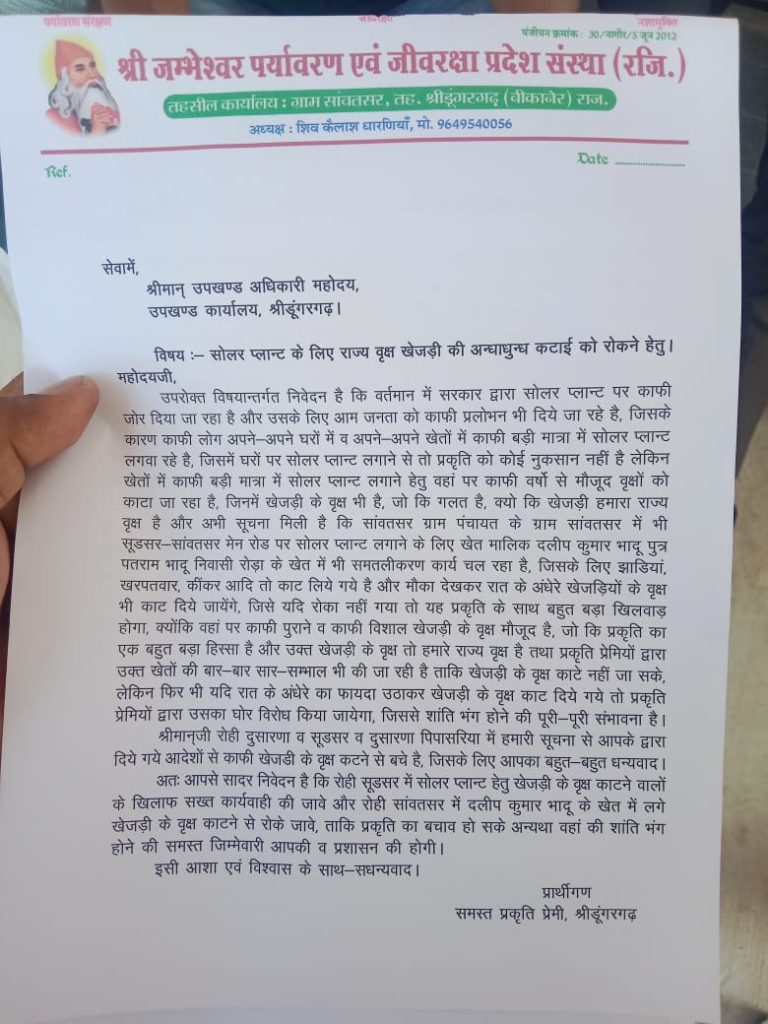 पर्यावरण संरक्षण
नशामुक्ति
पंजीयन क्रमांक : 30/नागौर/5 जून 2012
श्री जम्भेश्वर पर्यावरण एवं जीवरक्षा प्रदेश संस्था (रजि.)
तहसील कार्यालय : ग्राम सांवतसर, तह. श्रीडूंगरगढ़ (बीकानेर) राज.
अध्यक्ष : शिव कैलाश धारणियाँ, मो. 9649540056
Ref.
Date
सेवामें,
श्रीमान् उपखण्ड अधिकारी महोदय,
उपखण्ड कार्यालय, श्रीडूंगरगढ़।
विषय :– सोलर प्लान्ट के लिए राज्य वृक्ष खेजड़ी की अन्धाधुन्ध कटाई को रोकने हेतु।
महोदयजी,
उपरोक्त विषयान्तर्गत निवेदन है कि वर्तमान में सरकार द्वारा सोलर प्लान्ट पर काफी
जोर दिया जा रहा है और उसके लिए आम जनता को काफी प्रलोभन भी दिये जा रहे है, जिसके
कारण काफी लोग अपने–अपने घरों में व अपने–अपने खेतों में काफी बड़ी मात्रा में सोलर प्लान्ट
लगवा रहे है, जिसमें घरों पर सोलर प्लान्ट लगाने से तो प्रकृति को कोई नुकसान नहीं है लेकिन
खेतों में काफी बड़ी मात्रा में सोलर प्लान्ट लगाने हेतु वहां पर काफी वर्षो से मौजूद वृक्षों को
काटा जा रहा है, जिनमें खेजड़ी के वृक्ष भी है, जो कि गलत है, क्यो कि खेजड़ी हमारा राज्य
वृक्ष है और अभी सूचना मिली है कि सांवतसर ग्राम पंचायत के ग्राम सांवतसर में भी
सूडसर–सांवतसर मेन रोड पर सोलर प्लान्ट लगाने के लिए खेत मालिक दलीप कुमार भादू पुत्र
पतराम भादू निवासी रोड़ा के खेत में भी समतलीकरण कार्य चल रहा है, जिसके लिए झाडियां,
खरपतवार, कींकर आदि तो काट लिये गये है और मौका देखकर रात के अंधेरे खेजड़ियों के वृक्ष
भी काट दिये जायेंगे, जिसे यदि रोका नहीं गया तो यह प्रकृति के साथ बहुत बड़ा खिलवाड़
होगा, क्योंकि वहां पर काफी पुराने व काफी विशाल खेजड़ी के वृक्ष मौजूद है, जो कि प्रकृति का
एक बहुत बड़ा हिस्सा है और उक्त खेजड़ी के वृक्ष तो हमारे राज्य वृक्ष है तथा प्रकृति प्रेमियों द्वारा
उक्त खेतों की बार–बार सार–सम्भाल भी की जा रही है ताकि खेजड़ी के वृक्ष काटे नहीं जा सके,
लेकिन फिर भी यदि रात के अंधेरे का फायदा उठाकर खेजड़ी के वृक्ष काट दिये गये तो प्रकृति
प्रेमियों द्वारा उसका घोर विरोध किया जायेगा, जिससे शांति भंग होने की पूरी–पूरी संभावना है।
श्रीमान्जी रोही दुसारणा व सूडसर व दुसारणा पिपासरिया में हमारी सूचना से आपके द्वारा
दिये गये आदेशों से काफी खेजडी के वृक्ष कटने से बचे है, जिसके लिए आपका बहुत–बहुत धन्यवाद।
अतः आपसे सादर निवेदन है कि रोही सूडसर में सोलर प्लान्ट हेतु खेजड़ी के वृक्ष काटने वालों
के खिलाफ सख्त कार्यवाही की जावे और रोही सांवतसर में दलीप कुमार भादू के खेत में लगे
खेजड़ी के वृक्ष काटने से रोके जावे, ताकि प्रकृति का बचाव हो सके अन्यथा वहां की शांति भंग
होने की समस्त जिम्मेवारी आपकी व प्रशासन की होगी।
इसी आशा एवं विश्वास के साथ–सधन्यवाद।
प्रार्थीगण
समस्त प्रकृति प्रेमी, श्रीडूंगरगढ़